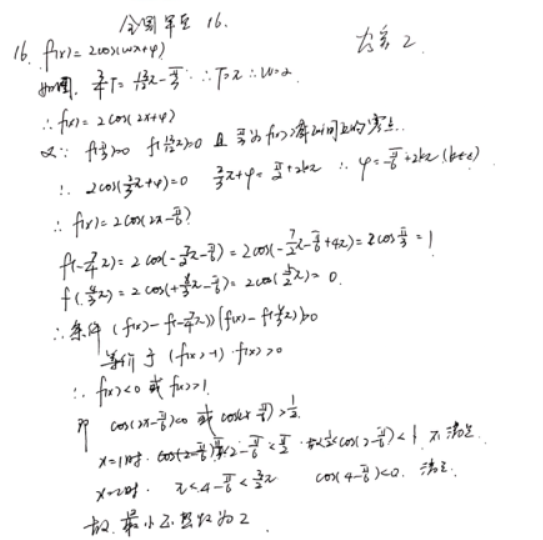 全国甲卷 16.
答案 2.
16. f(x)=2cos(ωx+φ)
如图. 3/4T=13/12π-π/3 ∴T=π ∴ω=2
∴f(x)=2cos(2x+φ)
又∵ f(π/3)=0 f(13/12π)>0 且 π/3为f(x)
∴ 2cos(2/3π+φ)=0 2/3π+φ=π/2+2kπ ∴φ=-π/6+2kπ(k∈z)
∴ f(x)=2cos(2x-π/6)
f(-7/4π)=2cos(-7/2π-π/6)=2cos(-7/2π-π/6+4π)=2cosπ/3=1
f(4/3π)=2cos(+8/3π-π/6)=2cos(5/2π)=0.
∴条件 (f(x)-f(-7/4π))(f(x)-f(4/3π))>0
等价于 (f(x)-1)·f(x)>0
∴ f(x)<0 或 f(x)>1
即 cos(2x-π/6)<0 或 cos(2x-π/6)>1/2.
x=1时. 2-π/6<π/2 cos(2-π/6)< 不满足.
x=2时. π<4-π/6<3/2π cos(4-π/6)<0. 满足.
故 最小正整数为2